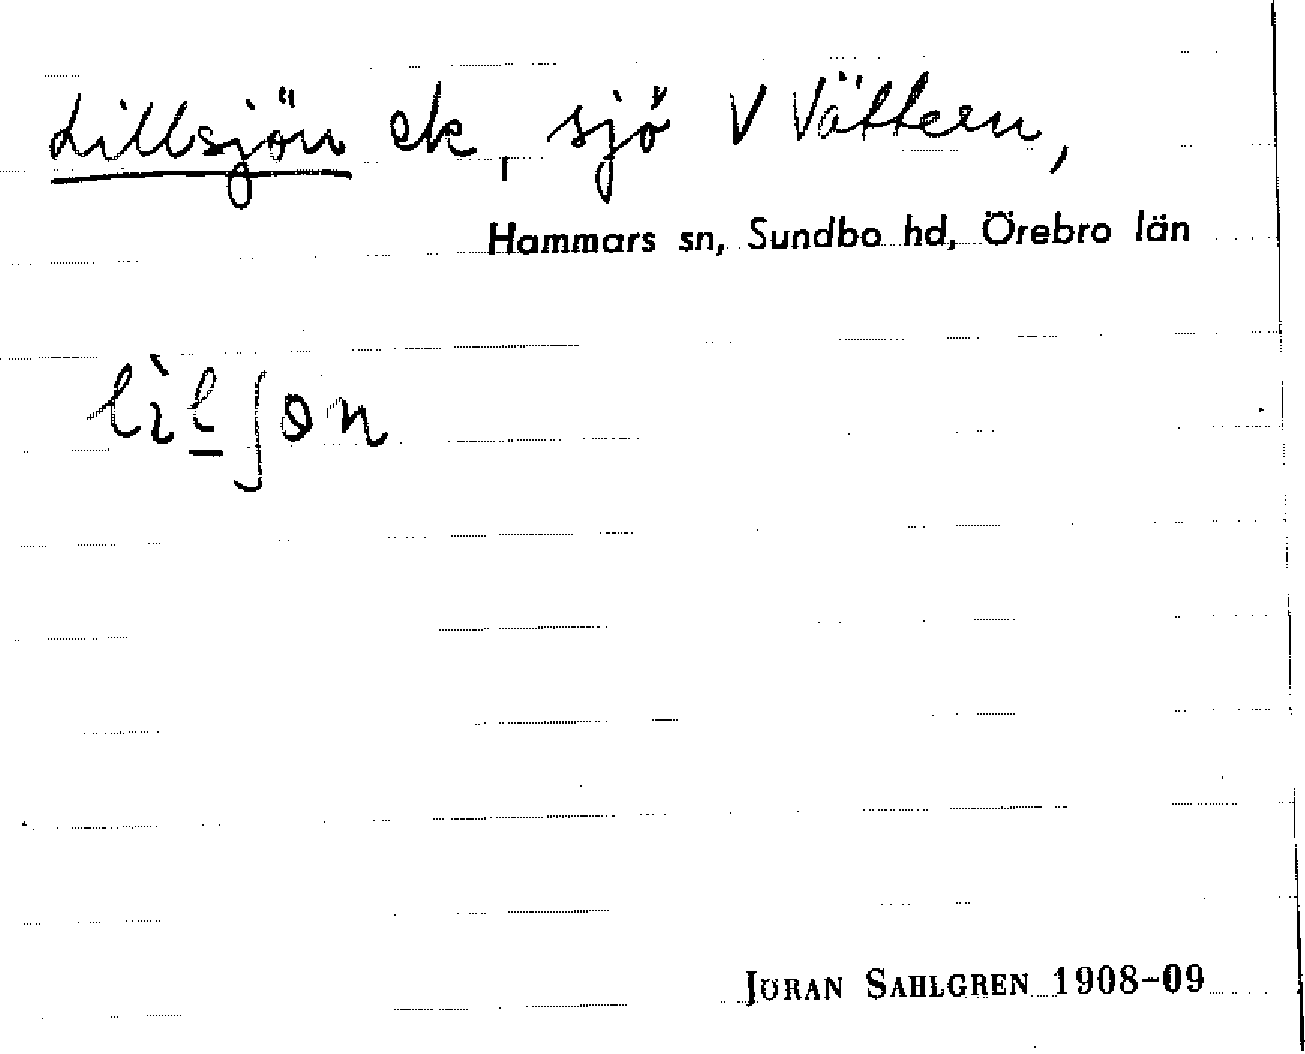 Lillsjön ek, sjö V Vättern,
Hammars sn, Sundbo hd, Örebro län
lìlʃɵn
JÖRAN SAHLGREN 1908-09